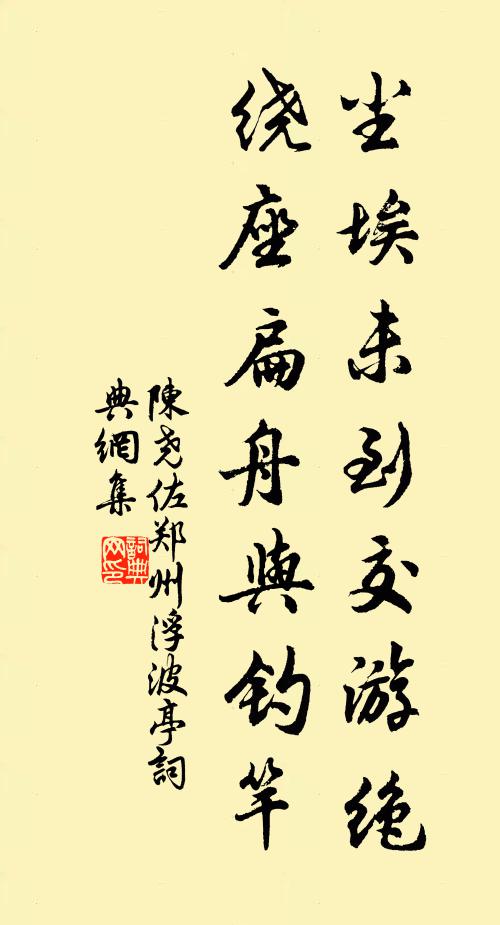 尘埃未到交游绝
绕座扁舟與钓竿
陳尧佐郑州浮波亭詞
典網集
詞典网印